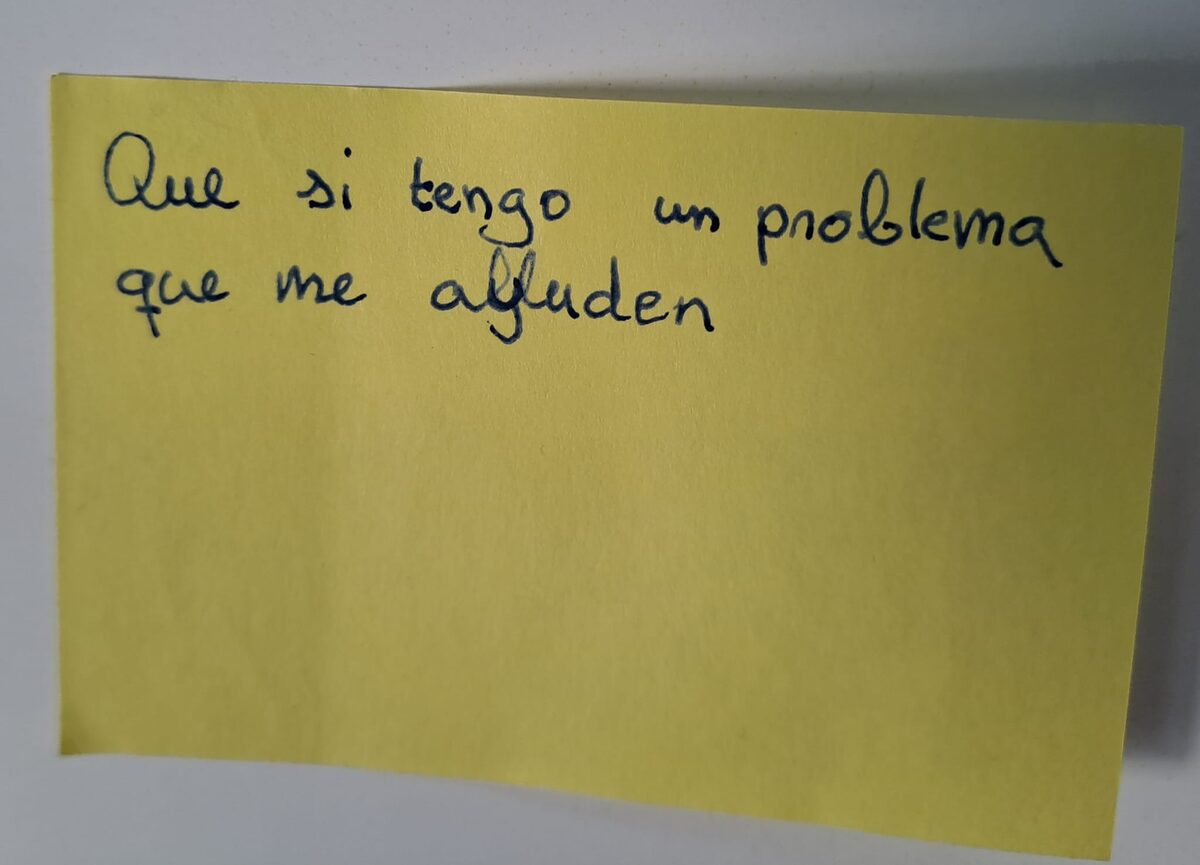 Que si tengo un problema
que me ayuden